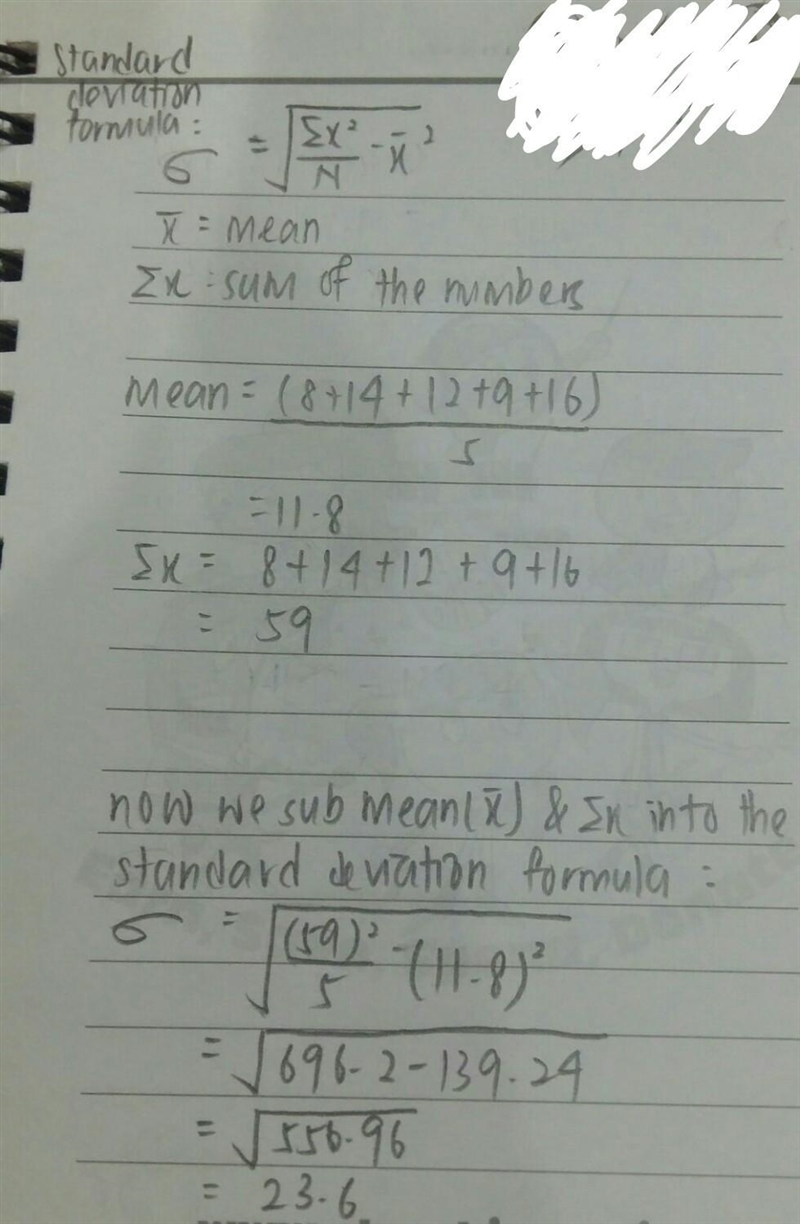 Standard
deviation
formula:
σ = √(Σx²/N - x̄²)
x̄ = mean
Σx = sum of the numbers
Mean = (8+14+12+9+16)/5
= 11.8
Σx = 8+14+12+9+16
= 59
now we sub mean(x̄) & Σx into the
standard deviation formula:
σ = √((59)²/5 - (11.8)²)
= √(696.2 - 139.24)
= √556.96
= 23.6